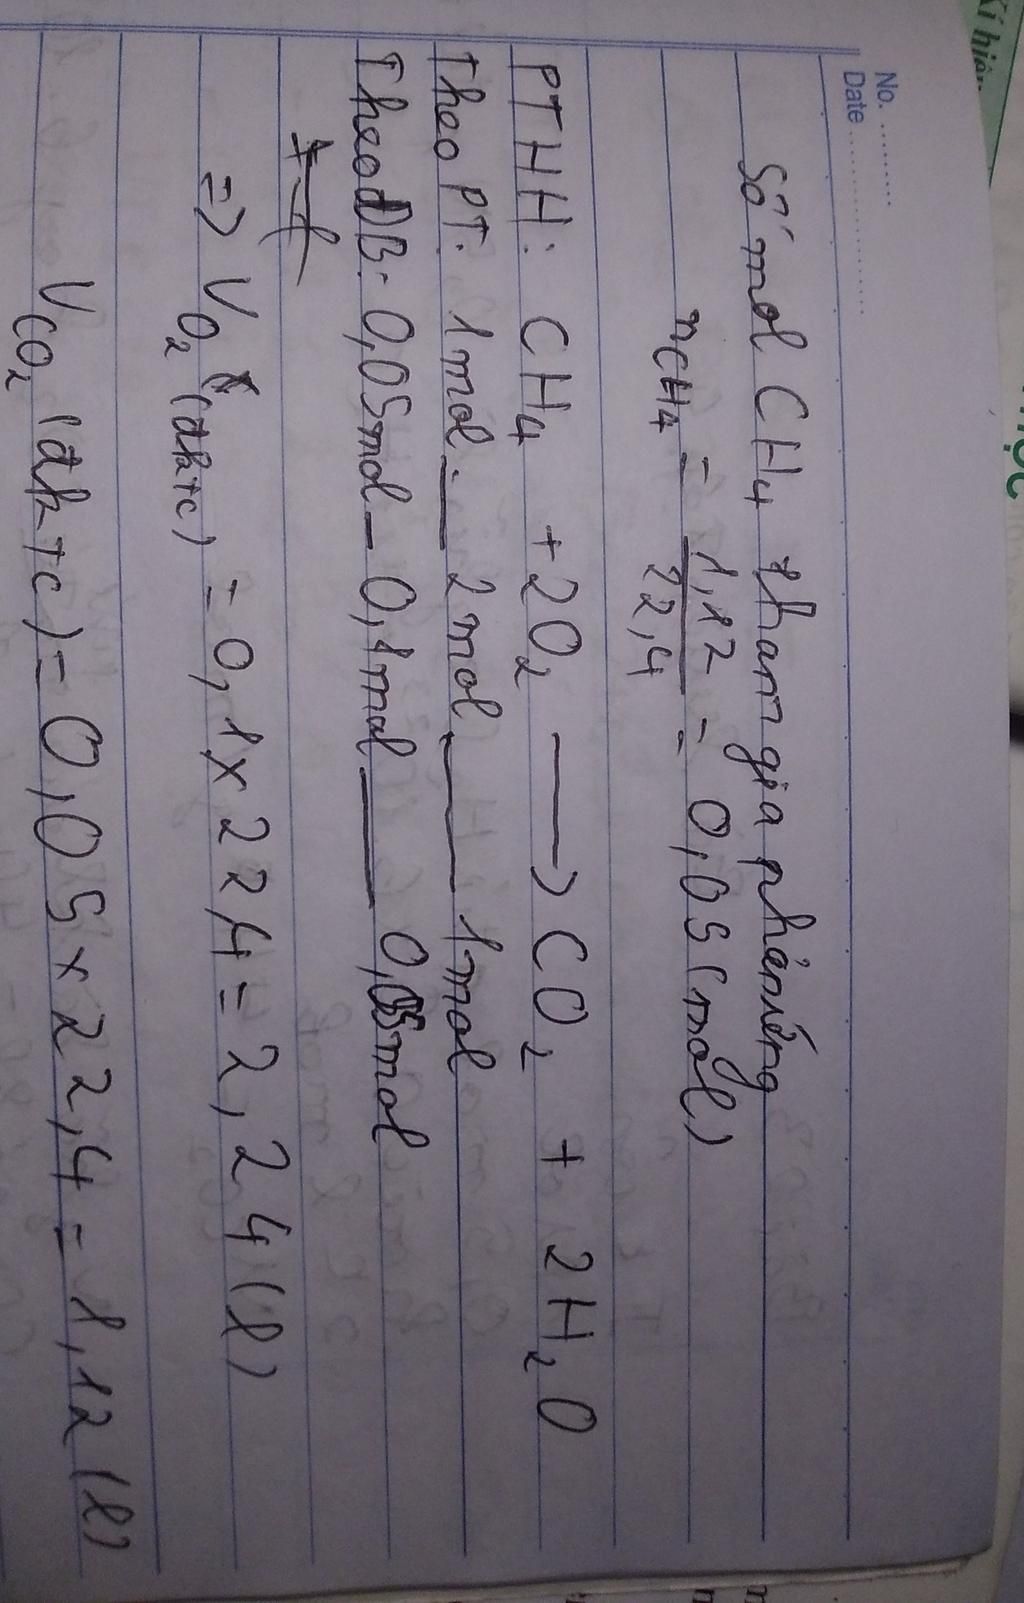 No. ............
Date ........................
Số mol CH4 tham gia phản ứng
nCH4 = 1,12 / 22,4 = 0,05 (mol)
PTHH: CH4 + 2O2 → CO2 + 2H2O
Theo PT: 1mol — 2mol — 1mol
Theo ĐB: 0,05mol — 0,1mol — 0,05mol
=> VO2 (đktc) = 0,1 x 22,4 = 2,24 (l)
VCO2 (đktc) = 0,05 x 22,4 = 1,12 (l)